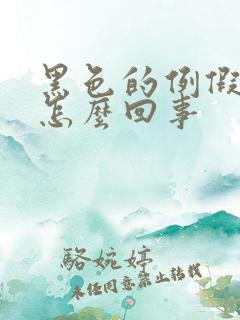 黑色的例假
怎麼回事
駱婉婷
未经同意禁止转载